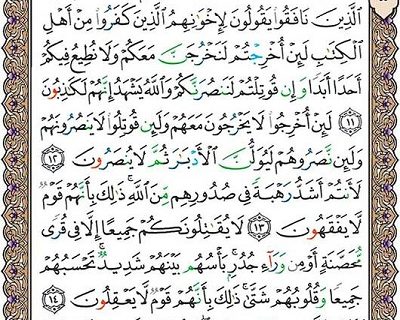 الَّذِينَ نَافَقُوا۟ يَقُولُونَ لِإِخْوَٰنِهِمُ الَّذِينَ كَفَرُوا۟ مِنْ أَهْلِ
الْكِتَٰبِ لَئِنْ أُخْرِجْتُمْ لَنَخْرُجَنَّ مَعَكُمْ وَلَا نُطِيعُ فِيكُمْ
أَحَدًا أَبَدًا وَإِن قُوتِلْتُمْ لَنَنصُرَنَّكُمْ وَاللَّهُ يَشْهَدُ إِنَّهُمْ لَكَٰذِبُونَ
﴿١١﴾ لَئِنْ أُخْرِجُوا۟ لَا يَخْرُجُونَ مَعَهُمْ وَلَئِن قُوتِلُوا۟ لَا يَنصُرُونَهُمْ
وَلَئِن نَّصَرُوهُمْ لَيُوَلُّنَّ الْأَدْبَٰرَ ثُمَّ لَا يُنصَرُونَ ﴿١٢﴾
لَأَنتُمْ أَشَدُّ رَهْبَةً فِى صُدُورِهِم مِّنَ اللَّهِ ۚ ذَٰلِكَ بِأَنَّهُمْ قَوْمٌ
لَّا يَفْقَهُونَ ﴿١٣﴾ لَا يُقَٰتِلُونَكُمْ جَمِيعًا إِلَّا فِى قُرًى
مُّحَصَّنَةٍ أَوْ مِن وَرَآءِ جُدُرٍۭ ۚ بَأْسُهُم بَيْنَهُمْ شَدِيدٌ ۚ تَحْسَبُهُمْ
جَمِيعًا وَقُلُوبُهُمْ شَتَّىٰ ۚ ذَٰلِكَ بِأَنَّهُمْ قَوْمٌ لَّا يَعْقِلُونَ ﴿١٤﴾